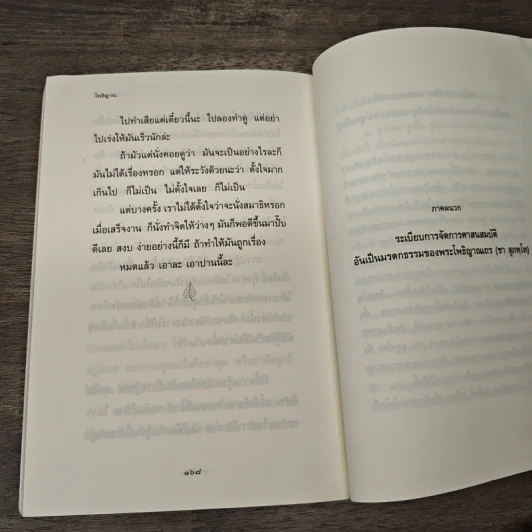 โพธิญาณ
ไปทำเสียแต่เดี๋ยวนี้นะ ไปลองทำดู แต่อย่า
ไปเร่งให้มันเร็วนักล่ะ
ถ้ามัวแต่นั่งคอยดูว่า มันจะเป็นอย่างไรละก็
มันไม่ได้เรื่องหรอก แต่ให้ระวังด้วยนะว่า ตั้งใจมาก
เกินไป ก็ไม่เป็น ไม่ตั้งใจเลย ก็ไม่เป็น
แต่บางครั้ง เราไม่ได้ตั้งใจว่าจะนั่งสมาธิหรอก
เมื่อเสร็จงาน ก็นั่งทำจิตให้ว่างๆ มันก็พอดีขึ้นมาปั๊บ
ดีเลย สงบ ง่ายอย่างนี้ก็มี ถ้าทำให้มันถูกเรื่อง
หมดแล้ว เอาละ เอาปานนี้ละ
๑๖๘
ภาคผนวก
ระเบียบการจัดการศาสนสมบัติ
อันเป็นมรดกธรรมของพระโพธิญาณเถร (ชา สุภทฺโท)